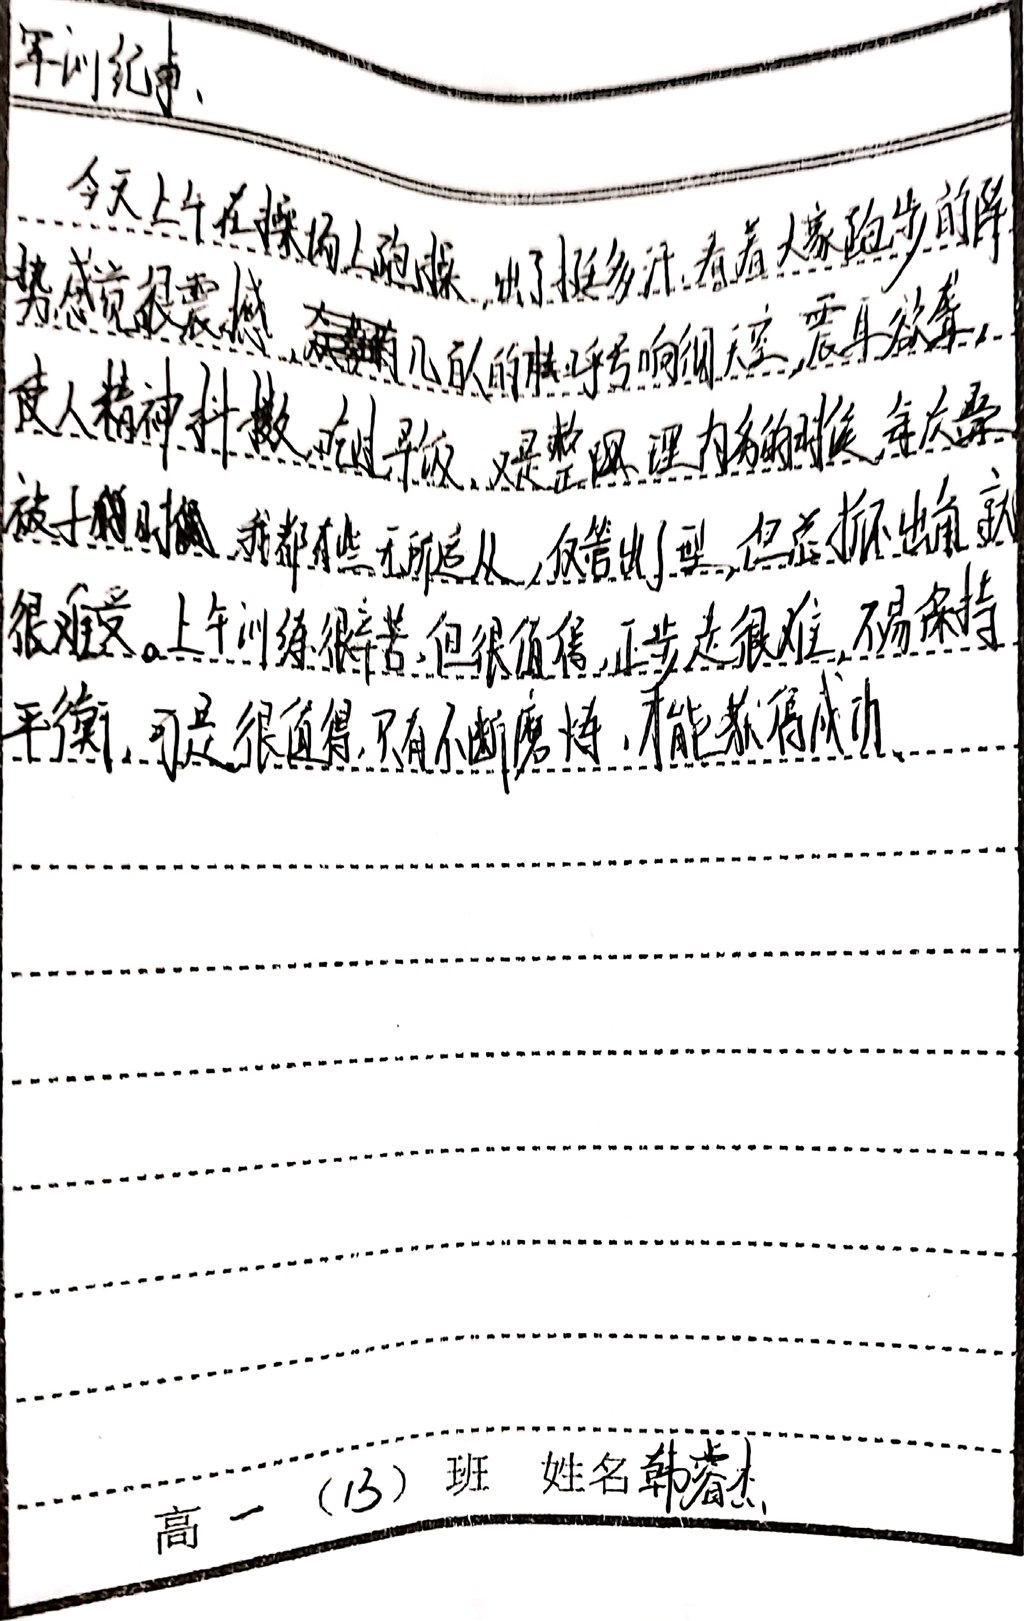 军训纪事、
今天上午在操场上跑操,出了挺多汗,看着大家跑步的阵
势感觉很震撼,几百人的呼号响彻天空,震耳欲聋,
使人精神抖擞,吃过早饭,又是整理内务的时候,每次叠
被子的时候,我都有些无所适从,仅管出了型,但总抓不出角就
很难受。上午训练很辛苦,但很值得,正步走很难,不易保持
平衡,可是很值得,只有不断磨炼,才能获得成功、
高一(13)班 姓名韩睿杰